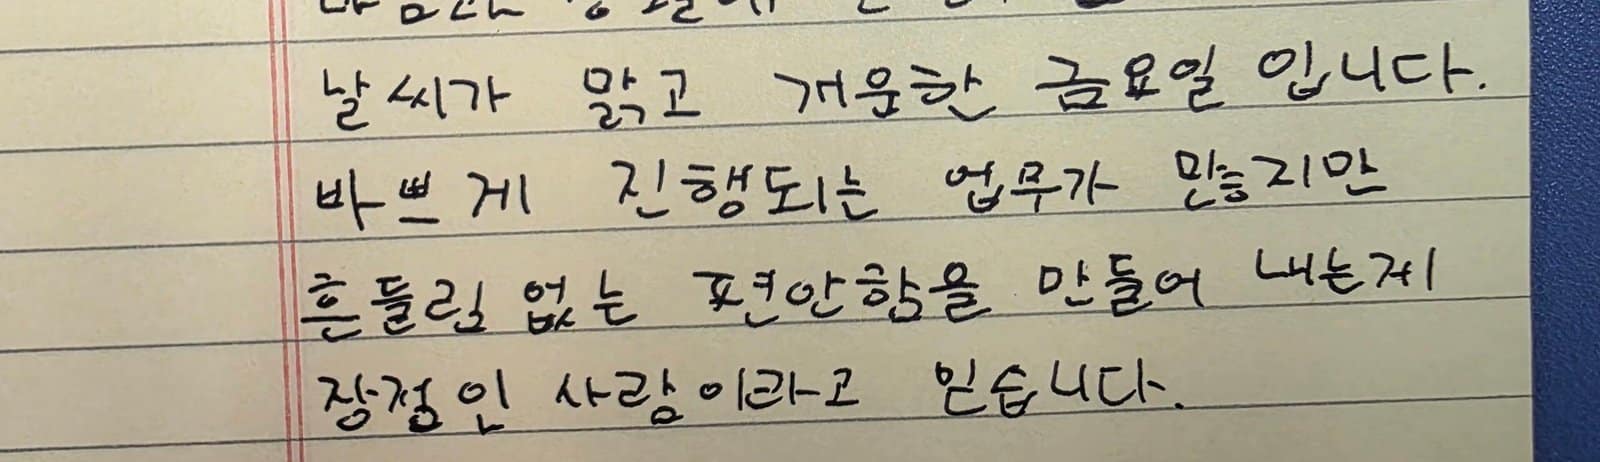 날씨가 맑고 개운한 금요일 입니다.
바쁘게 진행되는 업무가 많지만
흔들림 없는 편안함을 만들어 내는게
장점인 사람이라고 믿습니다.